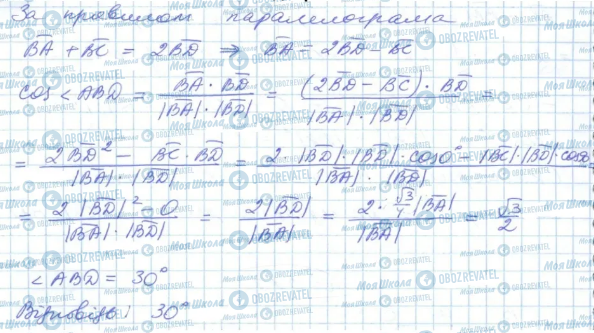 За правилом паралелограма
BA + BC = 2BD ⇒ BA = 2BD - BC
cos<ABD = BA · BD / |BA| · |BD| = (2BD - BC) · BD / |BA| · |BD| =
= 2BD² - BC · BD / |BA| · |BD| = 2 · |BD| · |BD| · cos0° - |BC| · |BD| · cos90 / |BA| · |BD| =
= 2|BD|² - 0 / |BA| · |BD| = 2|BD| / |BA| = 2 · √3/4 |BA| / |BA| = √3/2
<ABD = 30°
Відповідь: 30°